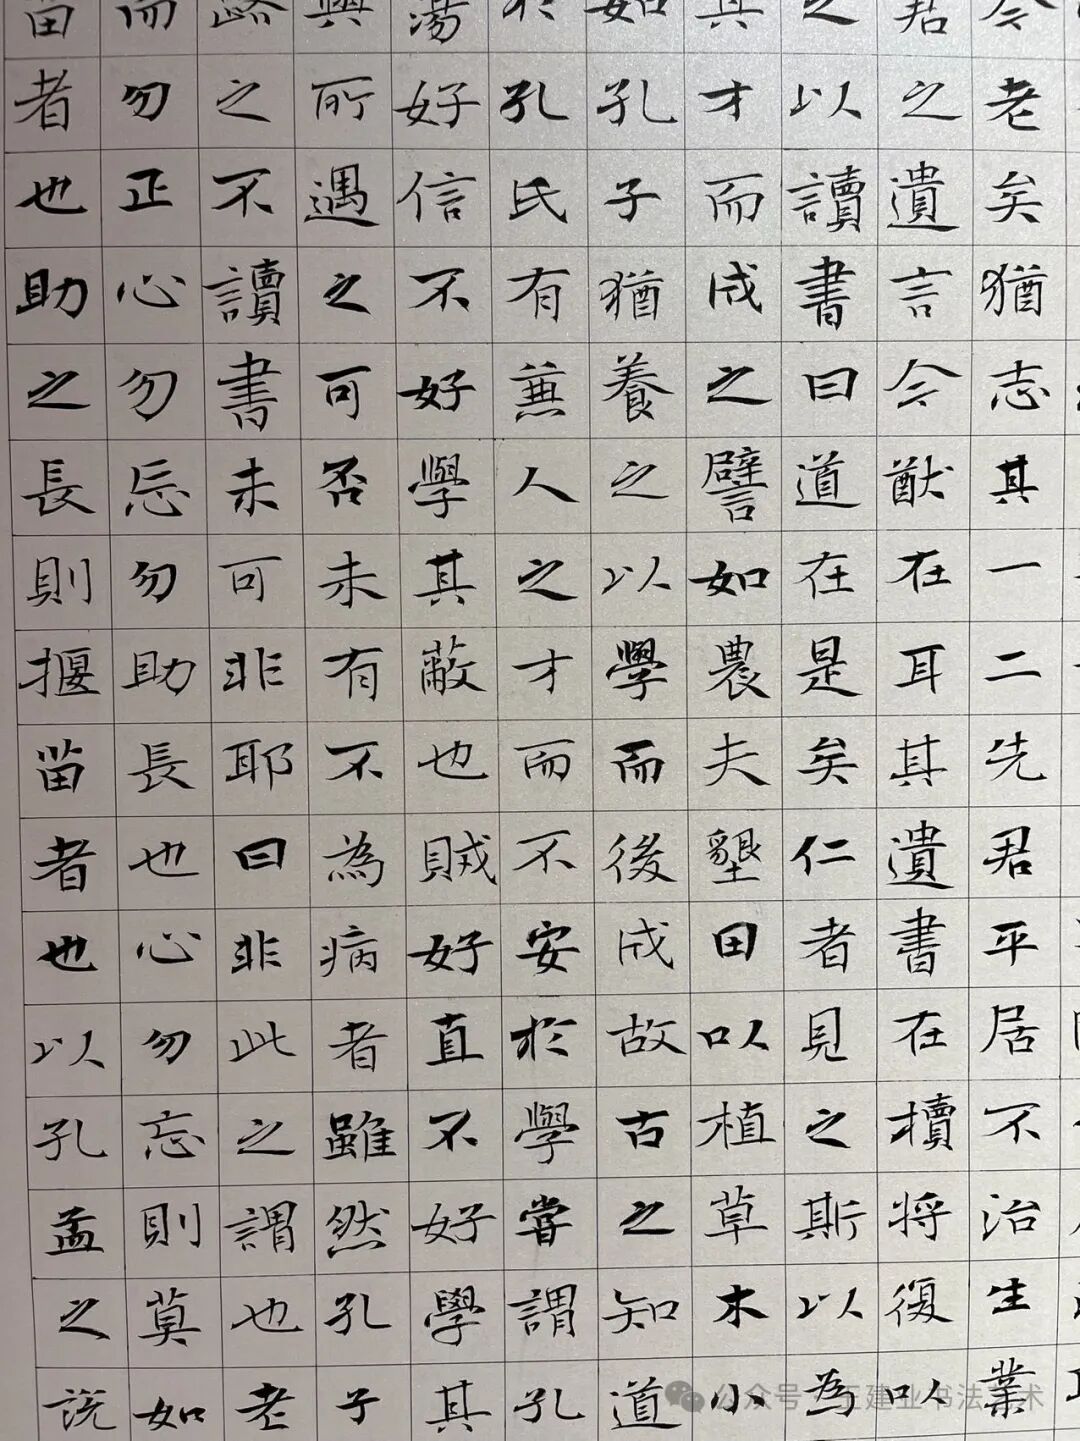 今老矣猶志其一二先君平居不治生業
君之遺言今猷在耳其遺書在櫝將復以
之以讀書曰道在是矣仁者見之斯以為
其才而成之譬如農夫墾田以植草木小
如孔子猶養之以學而後成故古之知道
於孔氏有兼人之才而不安於學嘗謂孔
蕩好信不好學其蔽也賊好直不好學其
與所遇之可否未有不為病者雖然孔子
路之不讀書未可非耶曰非此之謂也老
而勿正心勿忘勿助長也心勿忘則莫如
苗者也助之長則揠苗者也以孔孟之說
公众号 · 王建业书法艺术